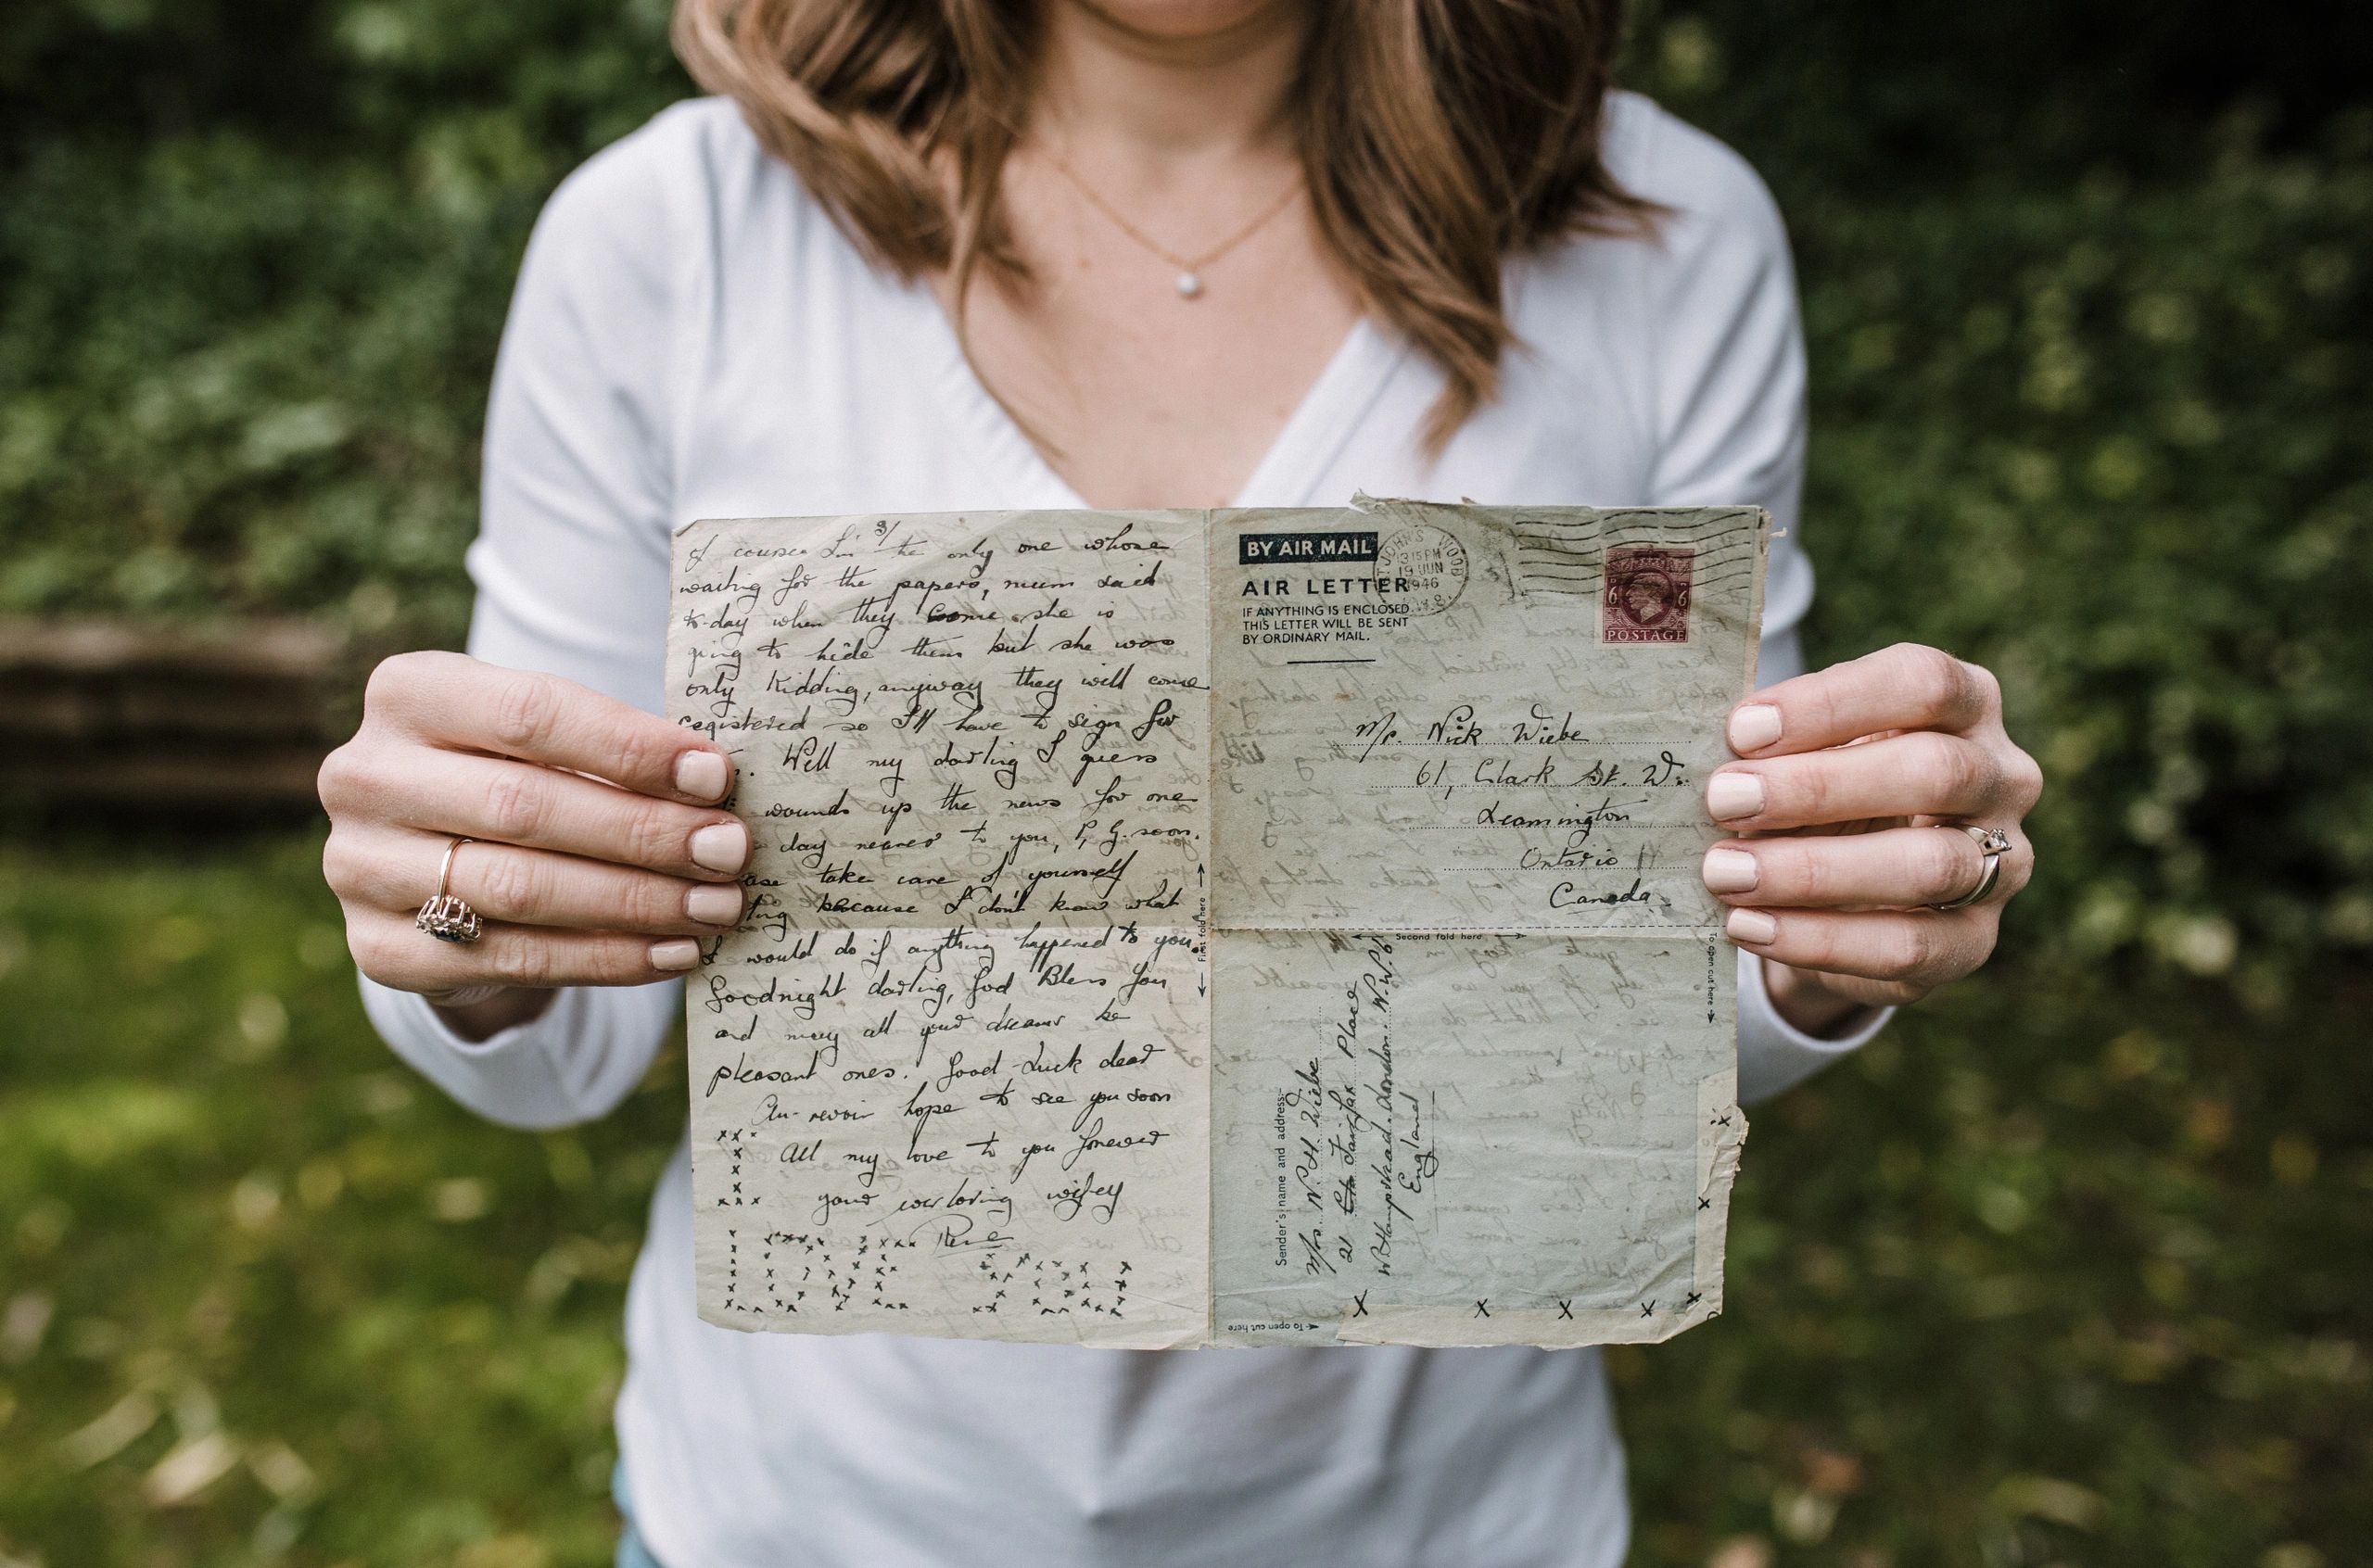 3/
of course I'm the only one whose
waiting for the papers, mum said
to-day when they come she is
going to hide them but she was
only kidding, anyway they will come
registered so I'll have to sign for
Well my darling I guess
wounds up the news for one
day nearer to you, P. G. soon.
take care of yourself
because I don't know what
I would do if anything happened to you.
Goodnight darling, God Bless You
and may all your dreams be
pleasant ones. Good-Luck dear
Au-revoir hope to see you soon
All my love to you forever
your loving wifey
Rene
← First fold here →
BY AIR MAIL
AIR LETTER
IF ANYTHING IS ENCLOSED
THIS LETTER WILL BE SENT
BY ORDINARY MAIL.
ST JOHN'S WOOD
3 15 PM
19 JUN
1946
N.W.8.
6 6
POSTAGE
Mr. Nick Wiebe
61, Clark St. W.
Leamington
Ontario
Canada.
← Second fold here →
To open cut here →
Sender's name and address:-
Mrs. N. H. Wiebe
21 Fairfax Place
W. Hampstead. London. N.W.6
England
To open cut here →